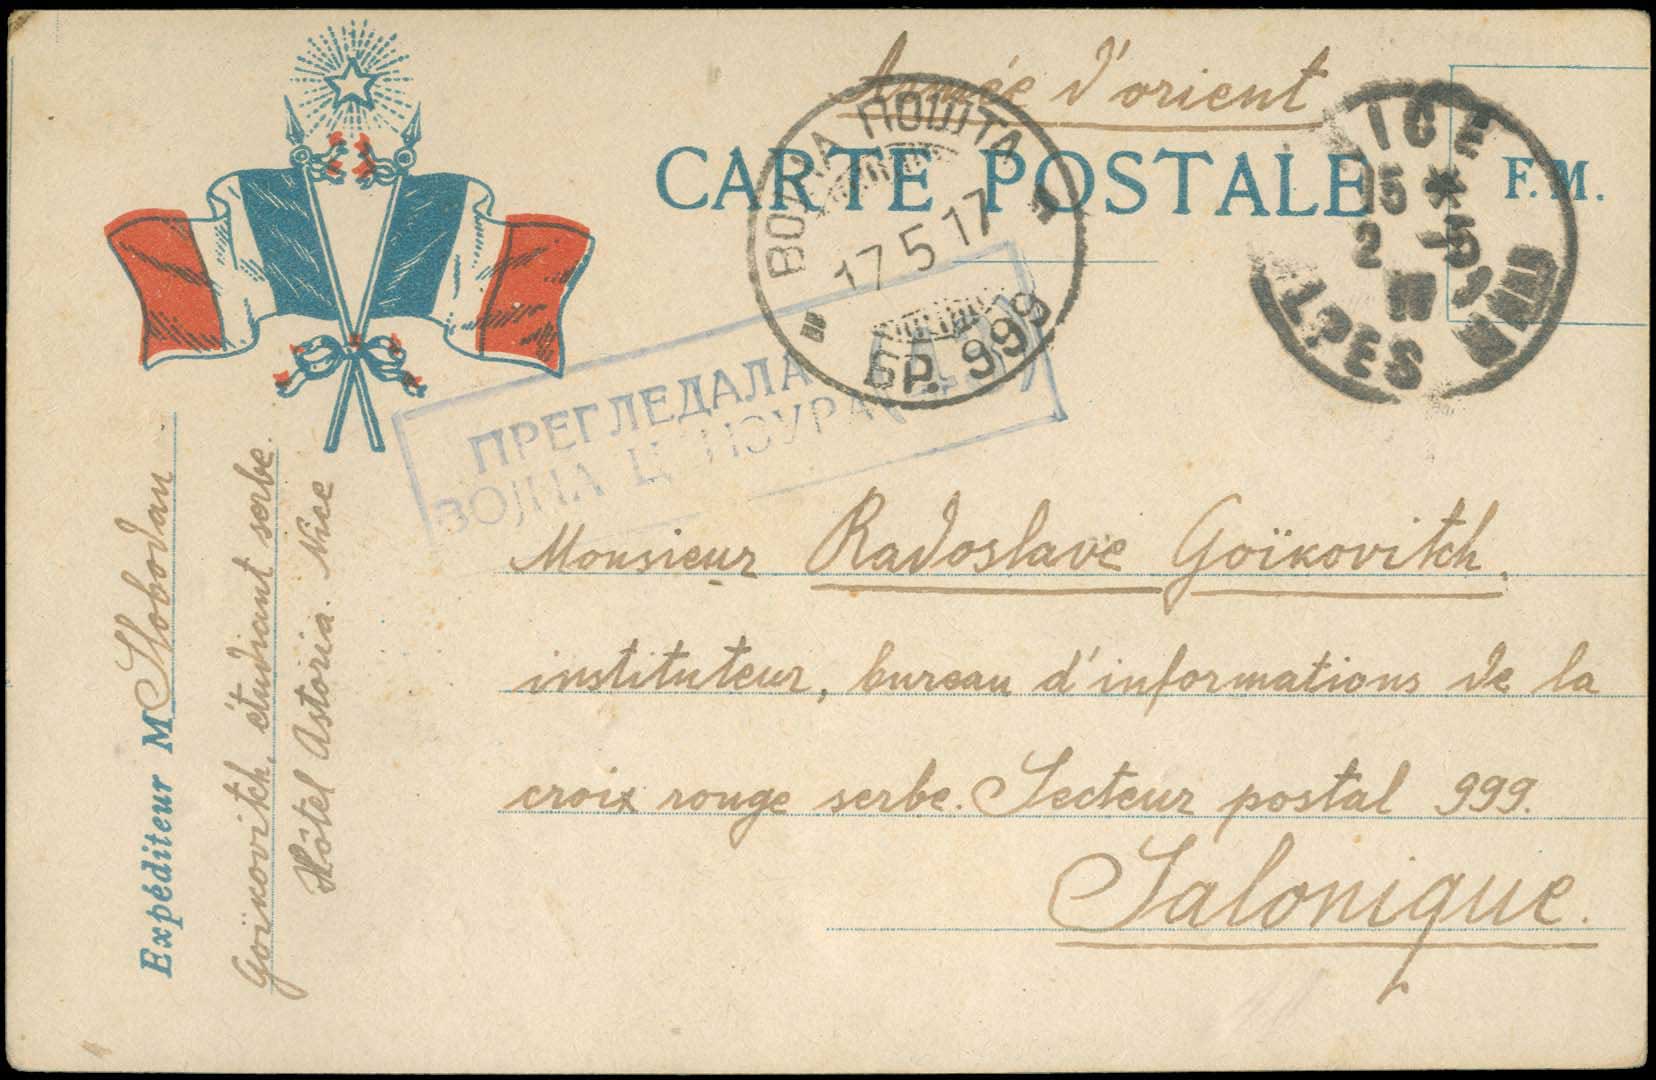 Armée d'orient
CARTE POSTALE
F.M.
ВОЈНА ПОШТА
17 5 17
БР. 999
ICE
15 * 5
2
ALPES
ПРЕГЛЕДАЛА
ВОЈНА ЦЕНЗУРА
Monsieur Radoslave Goïkovitch,
instituteur, bureau d'informations de la
croix rouge serbe. Secteur postal 999.
Salonique.
Expéditeur M Slobodan
Goïkovitch, étudiant serbe
Hôtel Astoria. Nice